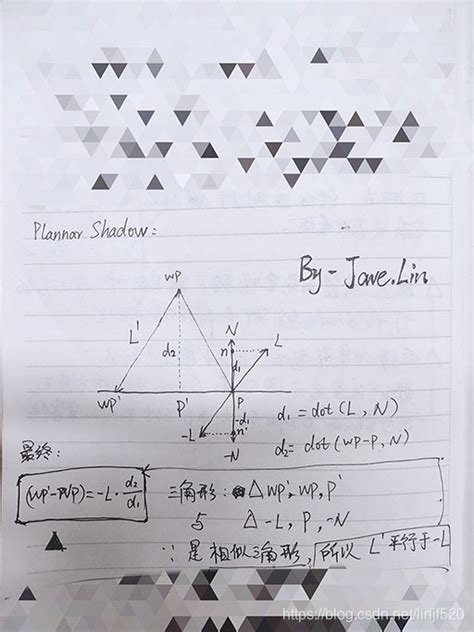 Plannar Shadow:
By - Jave.Lin
WP
L'
d₂
N
L
n
d₁
WP'
P'
P
-d₁
-L
n'
-N
d₁ = dot(L, N)
d₂= dot(WP-P, N)
最终:
(WP'-WP)=-L·d₂/d₁
三角形: △ WP', WP, P'
与 △ -L, P, -N
∵ 是相似三角形, 所以 L' 平行于 -L
https://blog.csdn.net/linjf520